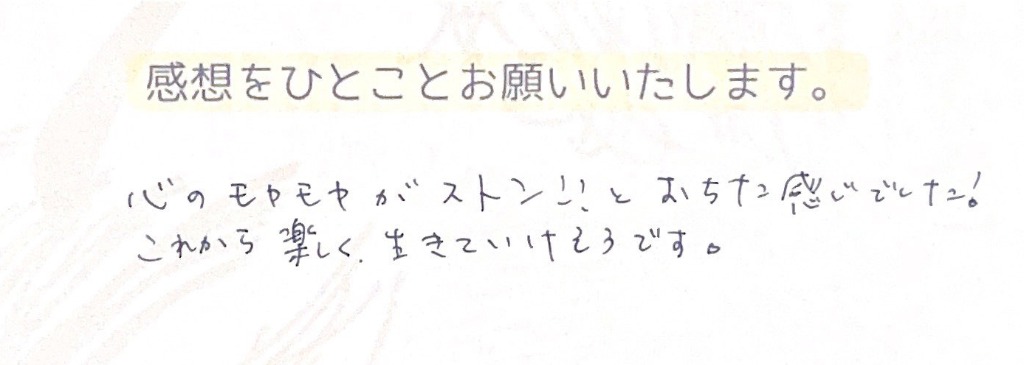 感想をひとことお願いいたします。
心のモヤモヤがストン!!とおちた感じでした!
これから楽しく、生きていけそうです。